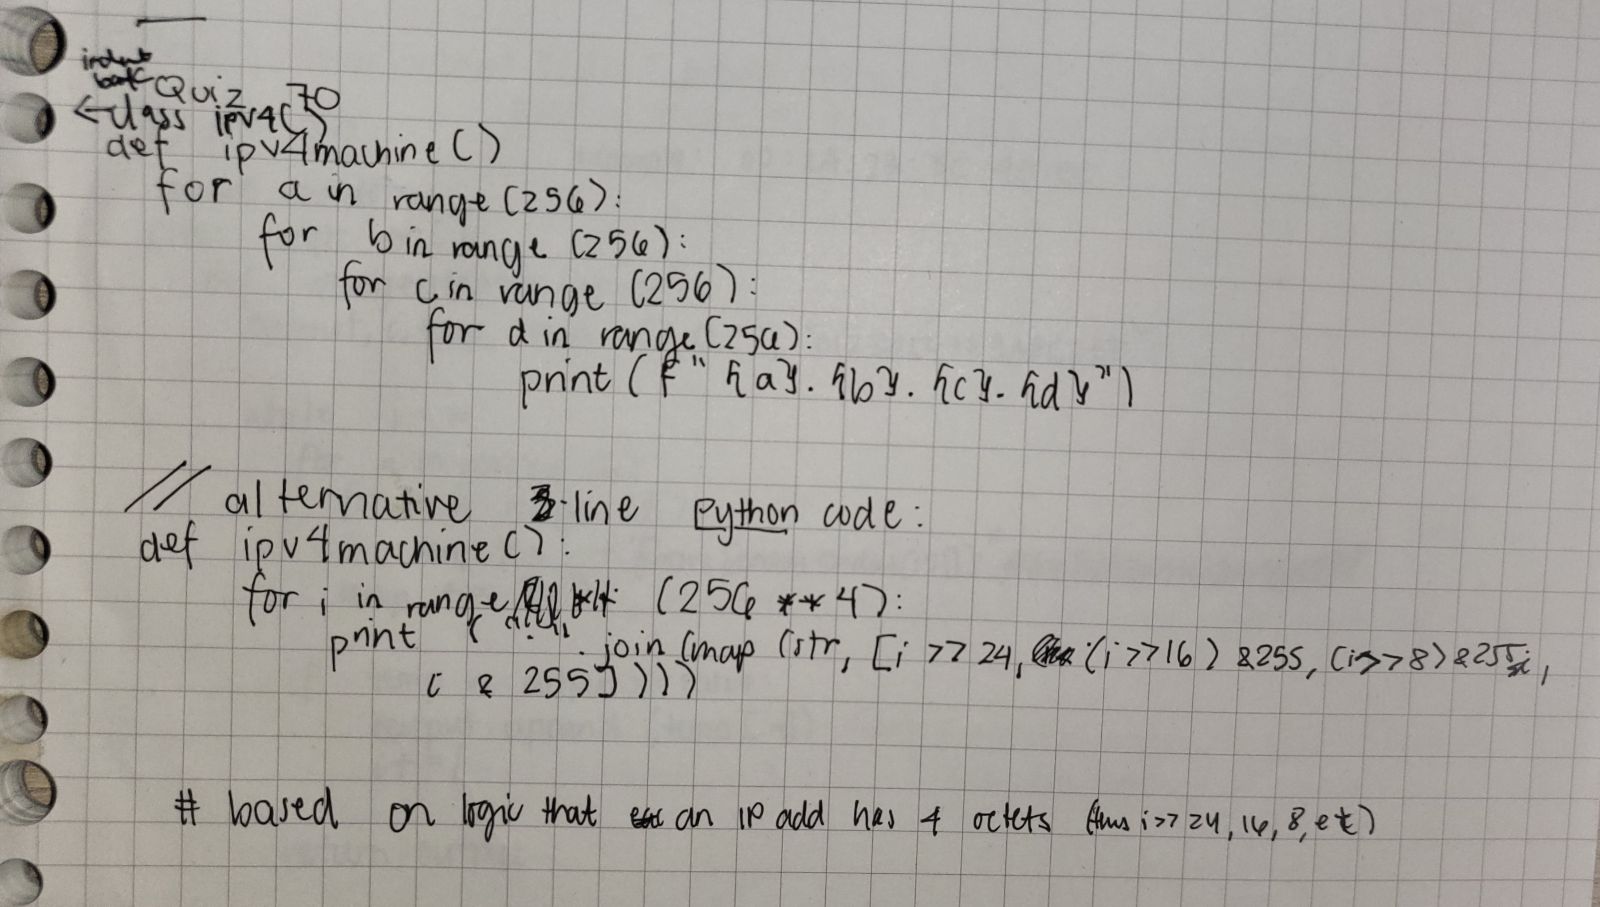 indent
back
Quiz 70
<-class ipv4()
def ipv4machine()
for a in range(256):
for b in range (256):
for c in range (256):
for d in range(256):
print (f"{a}.{b}.{c}.{d}")
// alternative 3-line Python code:
def ipv4machine():
for i in range (256 ** 4):
print ( ".".join (map (str, [i >> 24, (i>>16) &255, (i>>8)&255,
i & 255])))
# based on logic that an IP add has 4 octets (thus i>>24, 16, 8, etc)